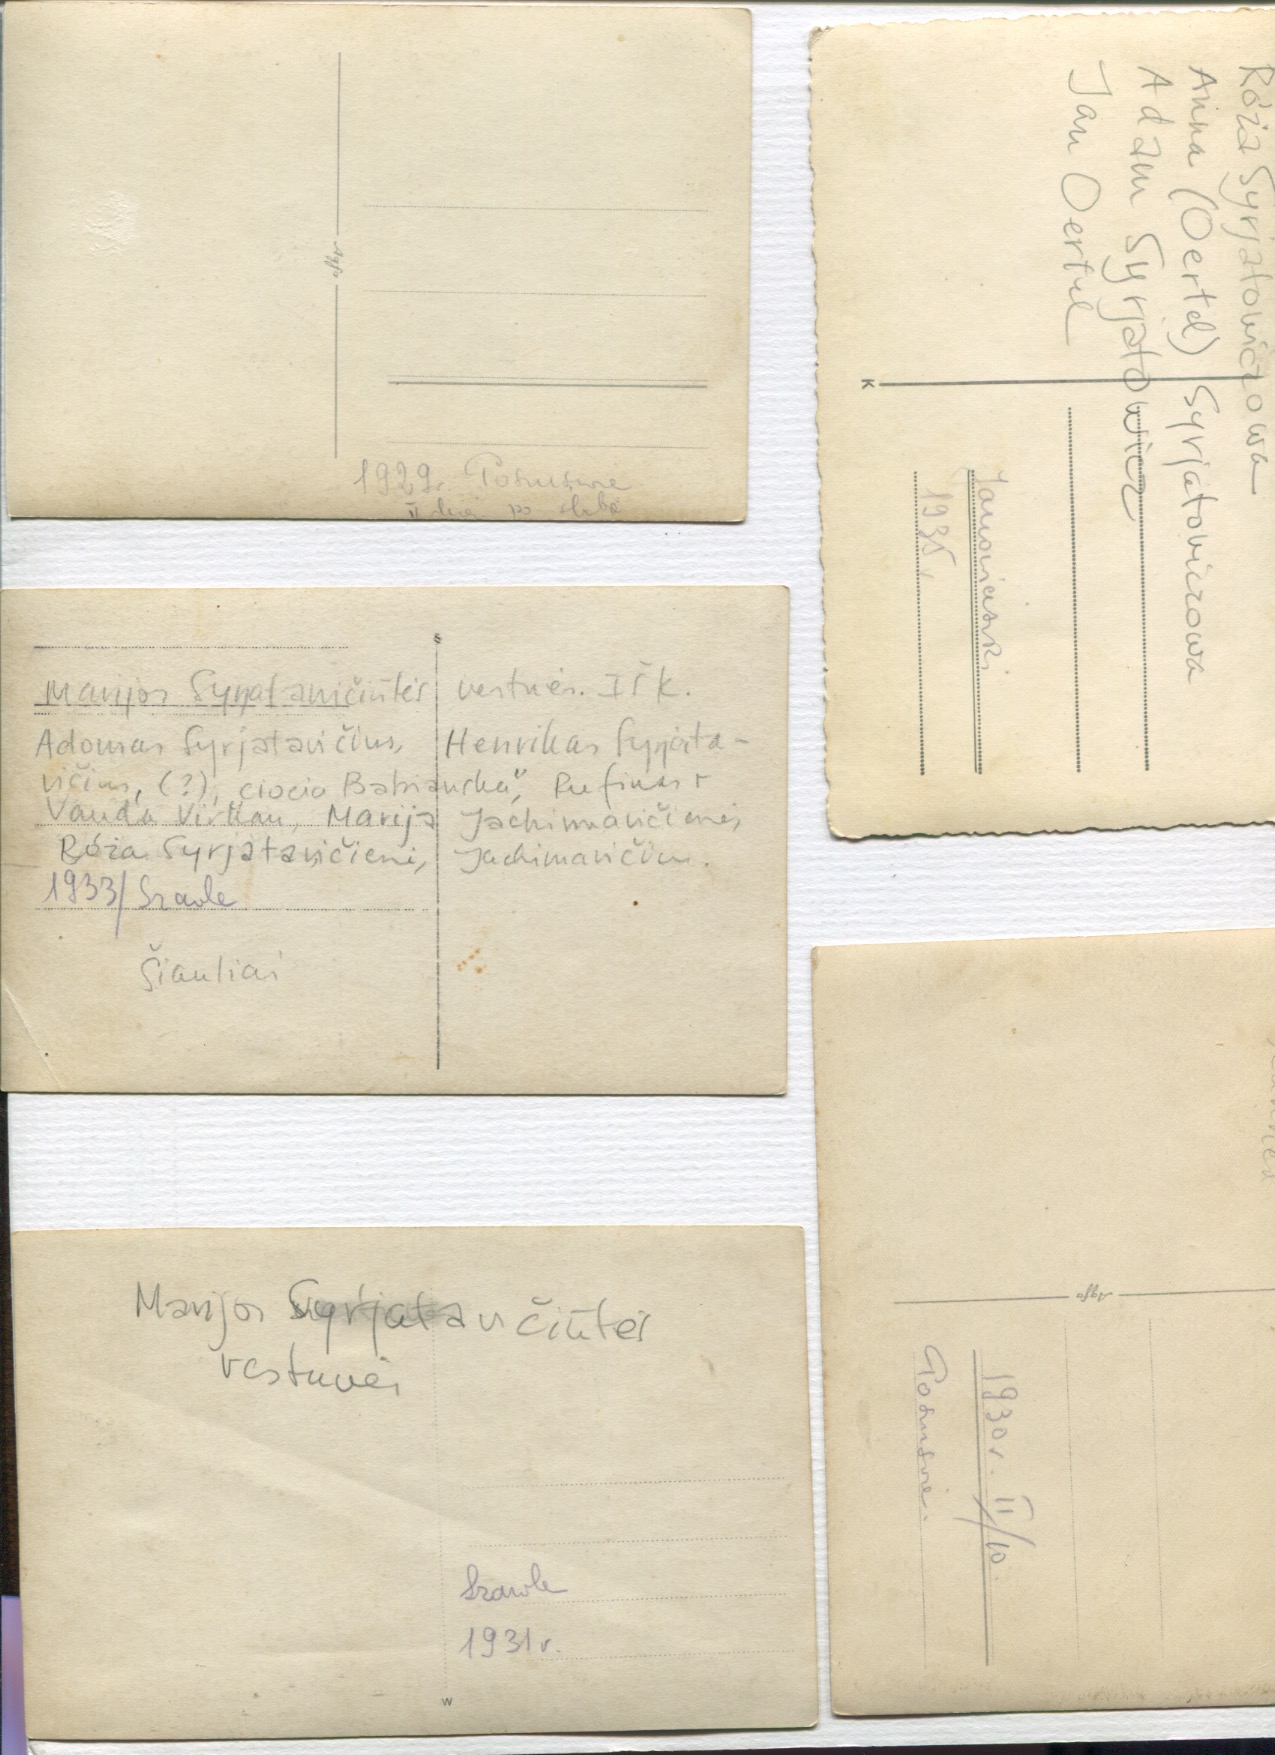 1929.
Róża Syrjatowiczowa
Anna (Oertel) Syrjatowiczowa
Adam Syrjatowicz
Jan Oertel
K
1935.
S
Marijos Syrjatavičiūtės vestuvės. Iš k.
Adomas Syrjatavičius, Henrikas Syrjata-
vičius, (?), ciocia Babianska", Rufinas +
Vanda Virkau, Marija Jachimavičienė,
Róża Syrjatavičienė, Jachimavičius.
1933/Szawle
Šiauliai
Marijos Syrjatavičiūtės
vestuvės
Szawle
1931 r.
W
Agfa
1930 r. II/10.